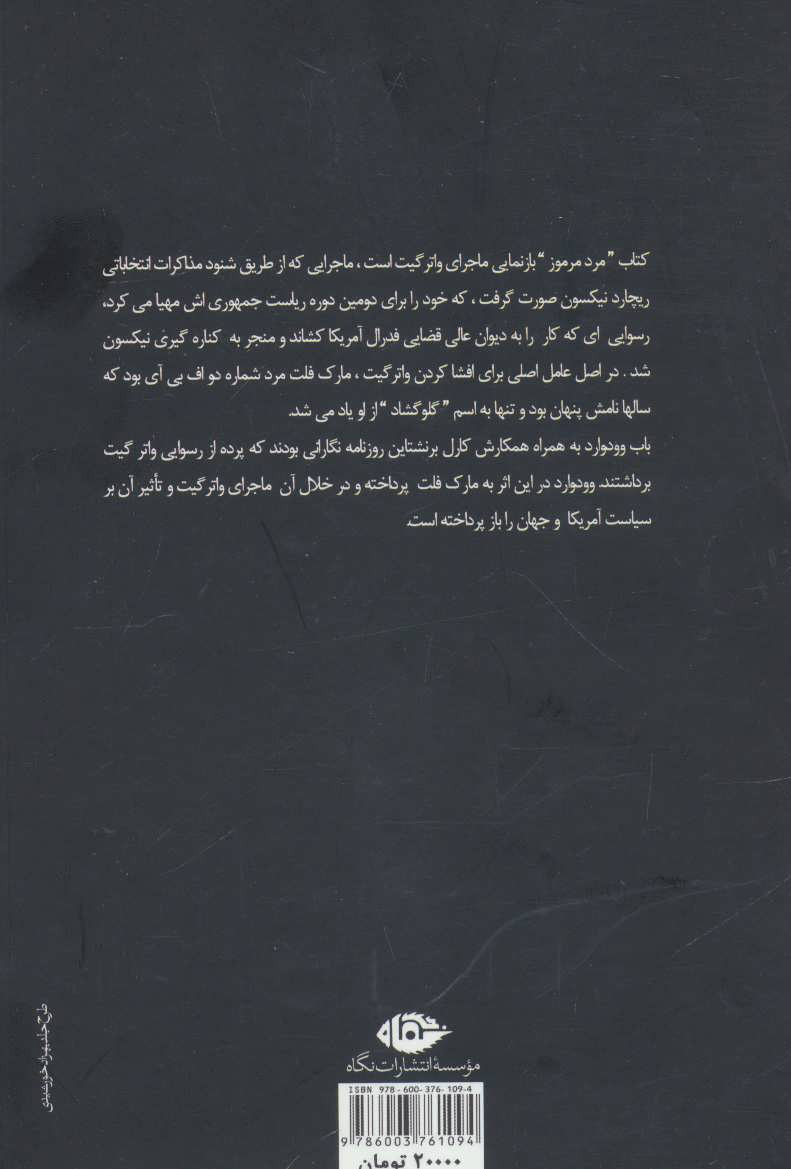 کتاب ”مرد مرموز“ بازنمایی ماجرای واترگیت است، ماجرایی که از طریق شنود مذاکرات انتخاباتی
ریچارد نیکسون صورت گرفت، که خود را برای دومین دوره ریاست جمهوری اش مهیا می کرد،
رسوایی ای که کار را به دیوان عالی قضایی فدرال آمریکا کشاند و منجر به کناره گیری نیکسون
شد. در اصل عامل اصلی برای افشا کردن واترگیت، مارک فلت مرد شماره دو اف بی آی بود که
سالها نامش پنهان بود و تنها به اسم ”گلوگشاد“ از او یاد می شد.
باب وودوارد به همراه همکارش کارل برنشتاین روزنامه نگارانی بودند که پرده از رسوایی واتر گیت
برداشتند. وودوارد در این اثر به مارک فلت پرداخته و در خلال آن ماجرای واترگیت و تأثیر آن بر
سیاست آمریکا و جهان را باز پرداخته است.
طرح جلد: بهزاد خورشیدی
نگاه
مؤسسهٔ انتشارات نگاه
ISBN 978-600-376-109-4
9 786003 761094
۲۰۰۰۰ تومان